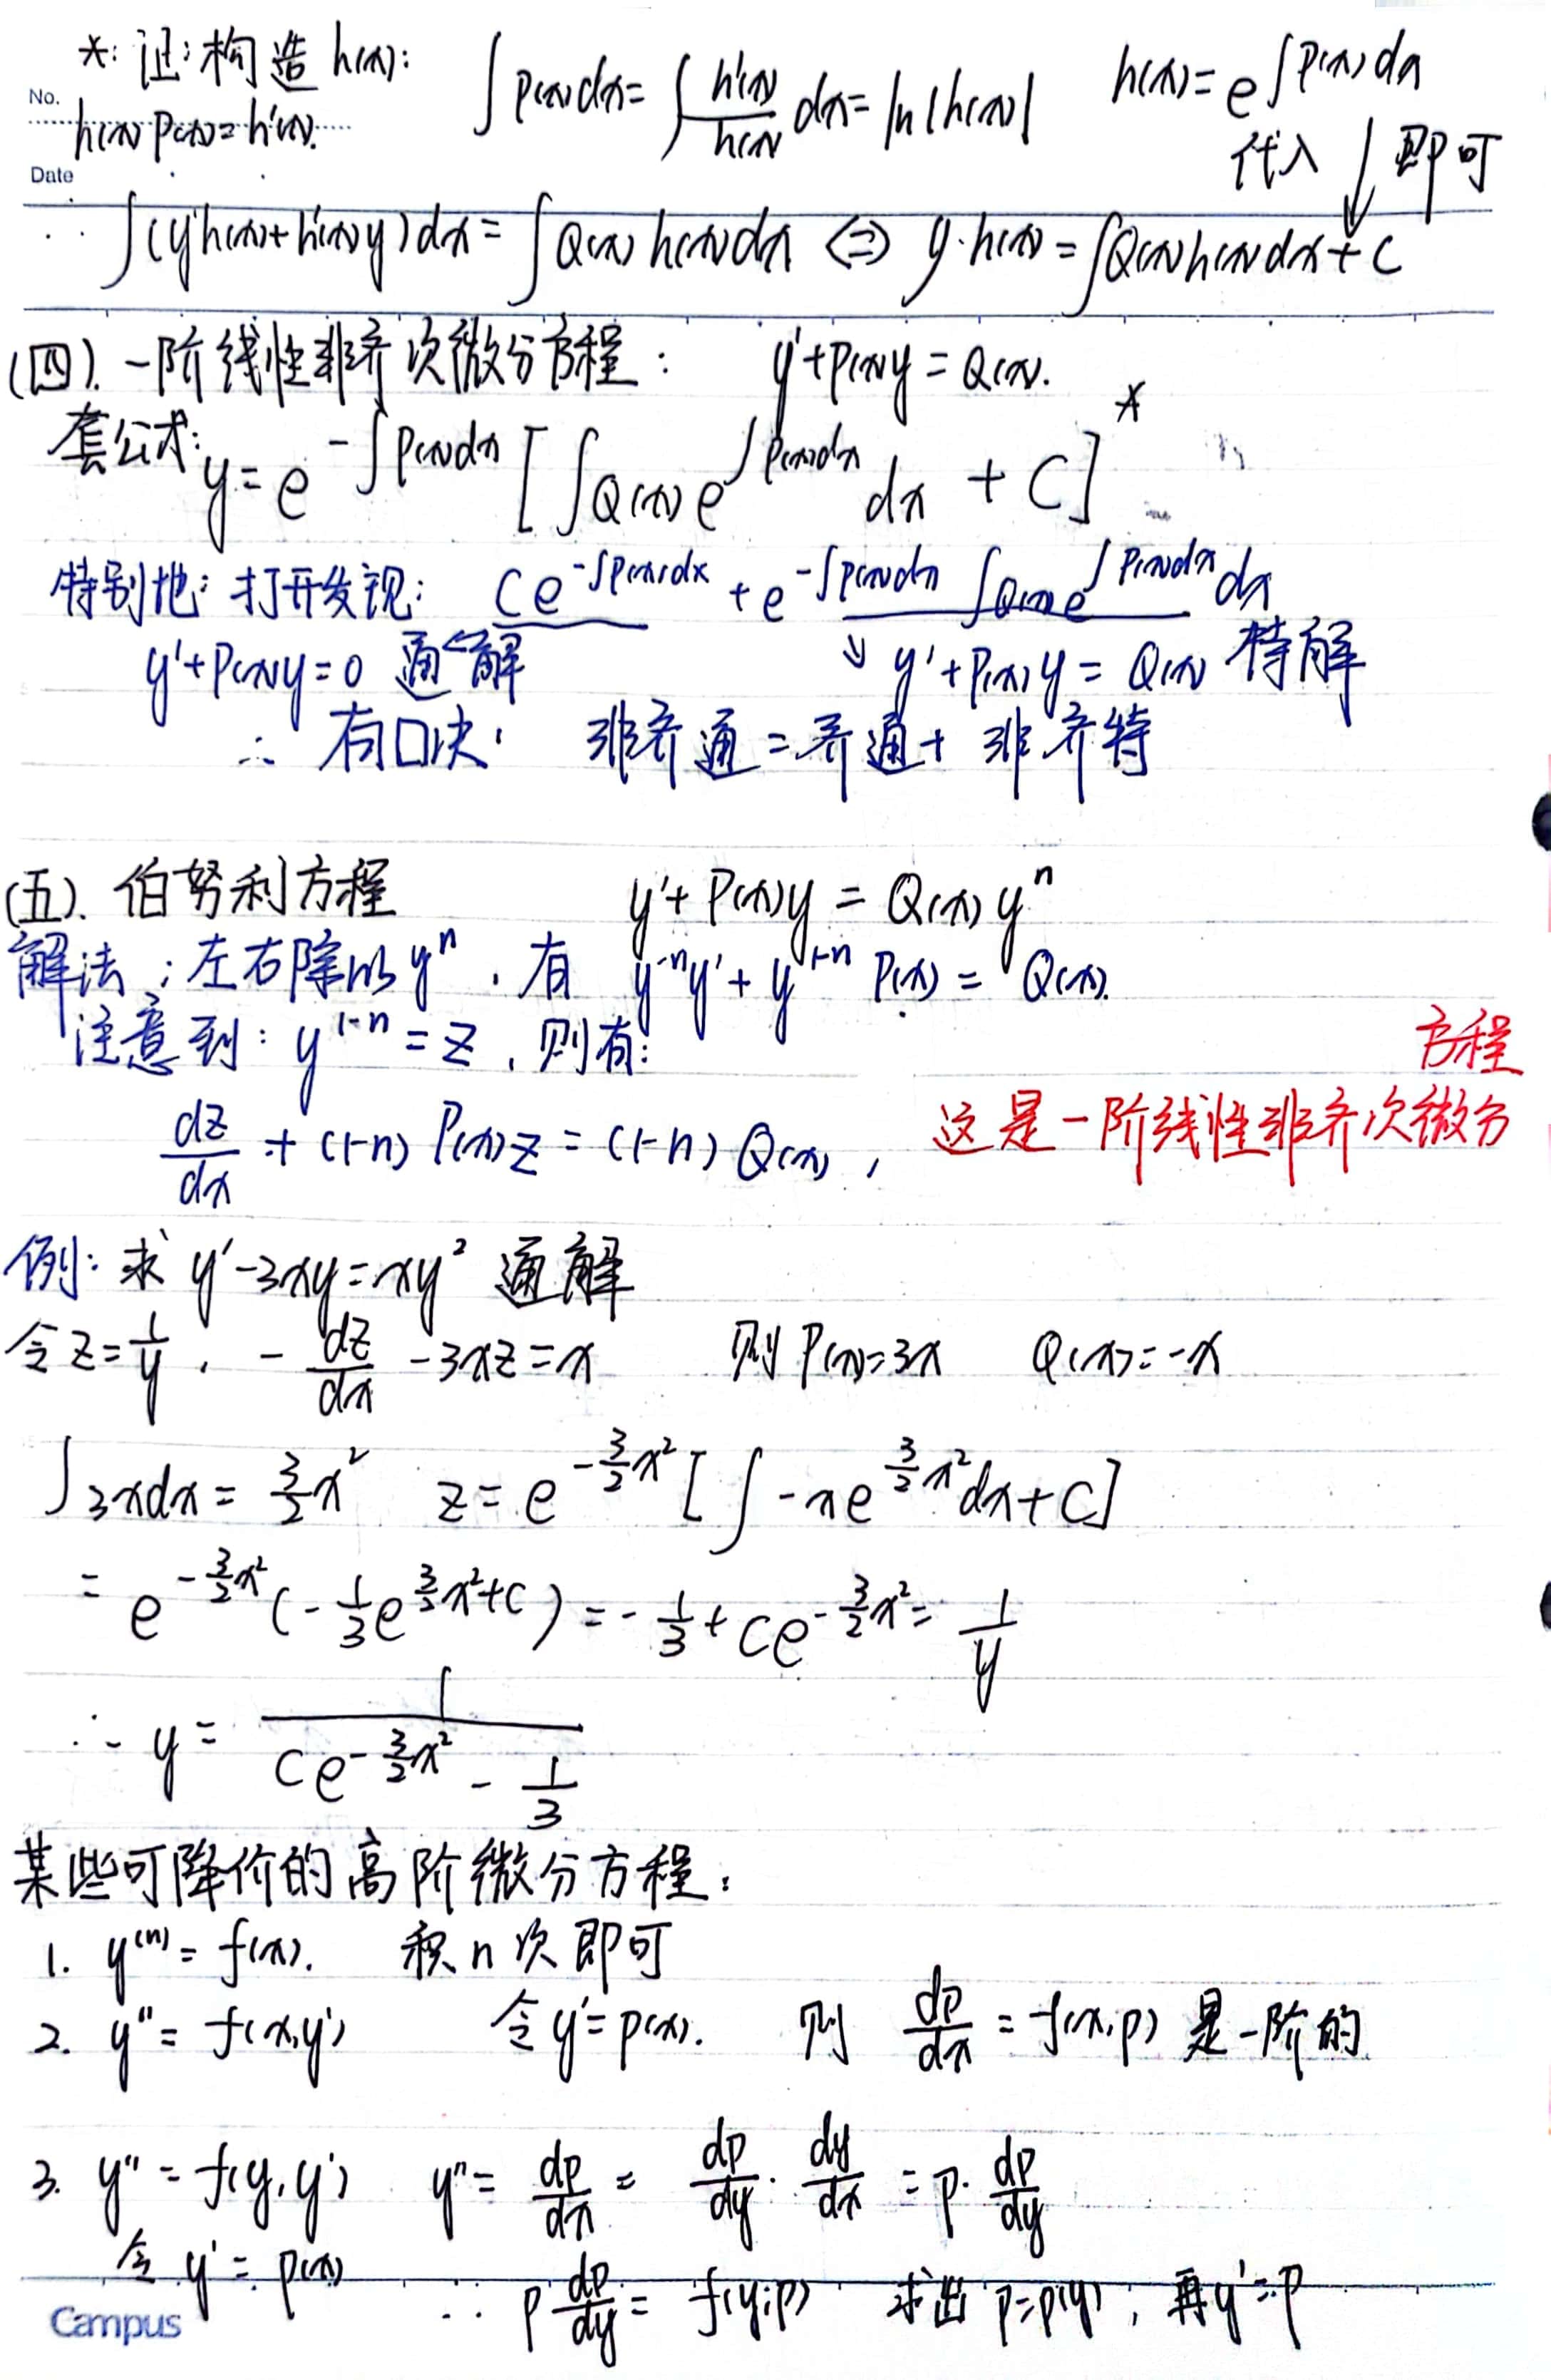 *: 证: 构造 h(x): ∫P(x)dx = ∫ h'(x)/h(x) dx = ln|h(x)| h(x) = e^{∫P(x)dx}
No.
h(x)P(x) = h'(x). 代入 ↓ 即可
Date
∴ ∫(y'h(x)+h'(x)y)dx = ∫Q(x)h(x)dx ⇔ y·h(x) = ∫Q(x)h(x)dx + C
(四). 一阶线性非齐次微分方程: y'+P(x)y = Q(x).
套公式: y = e^{-∫P(x)dx} [∫Q(x)e^{∫P(x)dx} dx + C] *
特别地: 打开发现: Ce^{-∫P(x)dx} + e^{-∫P(x)dx} ∫Q(x)e^{∫P(x)dx} dx
y'+P(x)y=0 通解 ↓ y'+P(x)y = Q(x) 特解
∴ 有口诀: 非齐通 = 齐通 + 非齐特
(五). 伯努利方程 y'+P(x)y = Q(x)y^n
解法: 左右除以 y^n, 有 y^{-n}y' + y^{1-n} P(x) = Q(x).
注意到: y^{1-n} = z, 则有:
方程
dz/dx + (1-n)P(x)z = (1-n)Q(x), 这是一阶线性非齐次微分
例: 求 y'-3xy=xy² 通解
令 z=1/y, -dz/dx -3xz=x 则 P(x)=3x Q(x)=-x
∫3xdx = 3/2x² z = e^{-3/2x²} [∫-xe^{3/2x²}dx+C]
= e^{-3/2x²} (-1/3e^{3/2x²}+C) = -1/3 + Ce^{-3/2x²} = 1/y
∴ y = 1/(Ce^{-3/2x²} - 1/3)
某些可降价的高阶微分方程:
1. y^{(n)} = f(x). 积 n 次即可
2. y'' = f(x,y') 令 y'=p(x). 则 dp/dx = f(x,p) 是一阶的
3. y'' = f(y,y') y'' = dp/dx = dp/dy · dy/dx = p·dp/dy
令 y' = p(x) ∴ p dp/dy = f(y,p) 求出 p=p(y), 再 y'=p
Campus